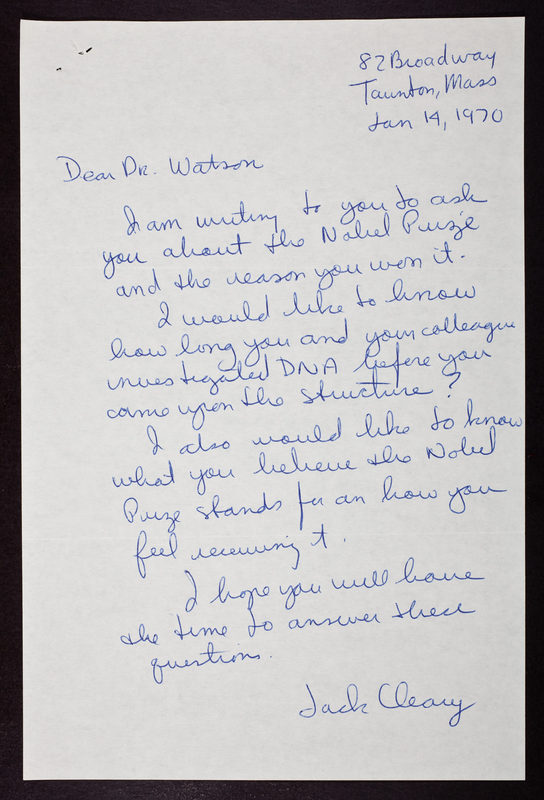 82 Broadway
Taunton, Mass
Jan 14, 1970
Dear Dr. Watson
I am writing to you to ask
you about the Nobel Prize
and the reason you won it.
I would like to know
how long you and your colleague
investigated DNA before you
came upon the structure?
I also would like to know
what you believe the Nobel
Prize stands for an how you
feel receiving it.
I hope you will have
the time to answer these
questions.
Jack Cleary